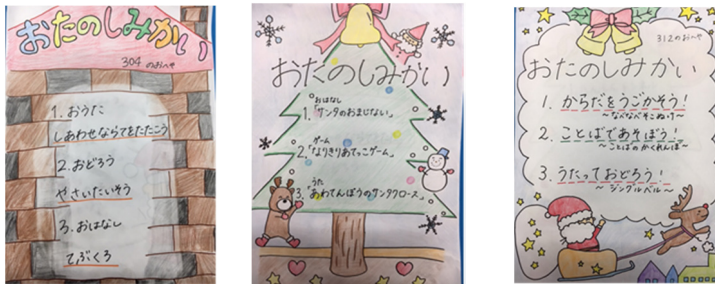 おたのしみかい
304 のおへや
1. おうた
しあわせならてをたたこう
2. おどろう
やさいたいそう
3. おはなし
てぶくろ
おたのしみかい
おはなし
1.「サンタのおまじない」
ゲーム
2.「なりきりあてっこゲーム」
うた
3.「あわてんぼうのサンタクロース」
312のおへや
おたのしみかい
1. からだをうごかそう!
～なべなべそこぬけ～
2. ことばであそぼう!
～ことばのかくれんぼ～
3. うたっておどろう!
～ジングルベル～